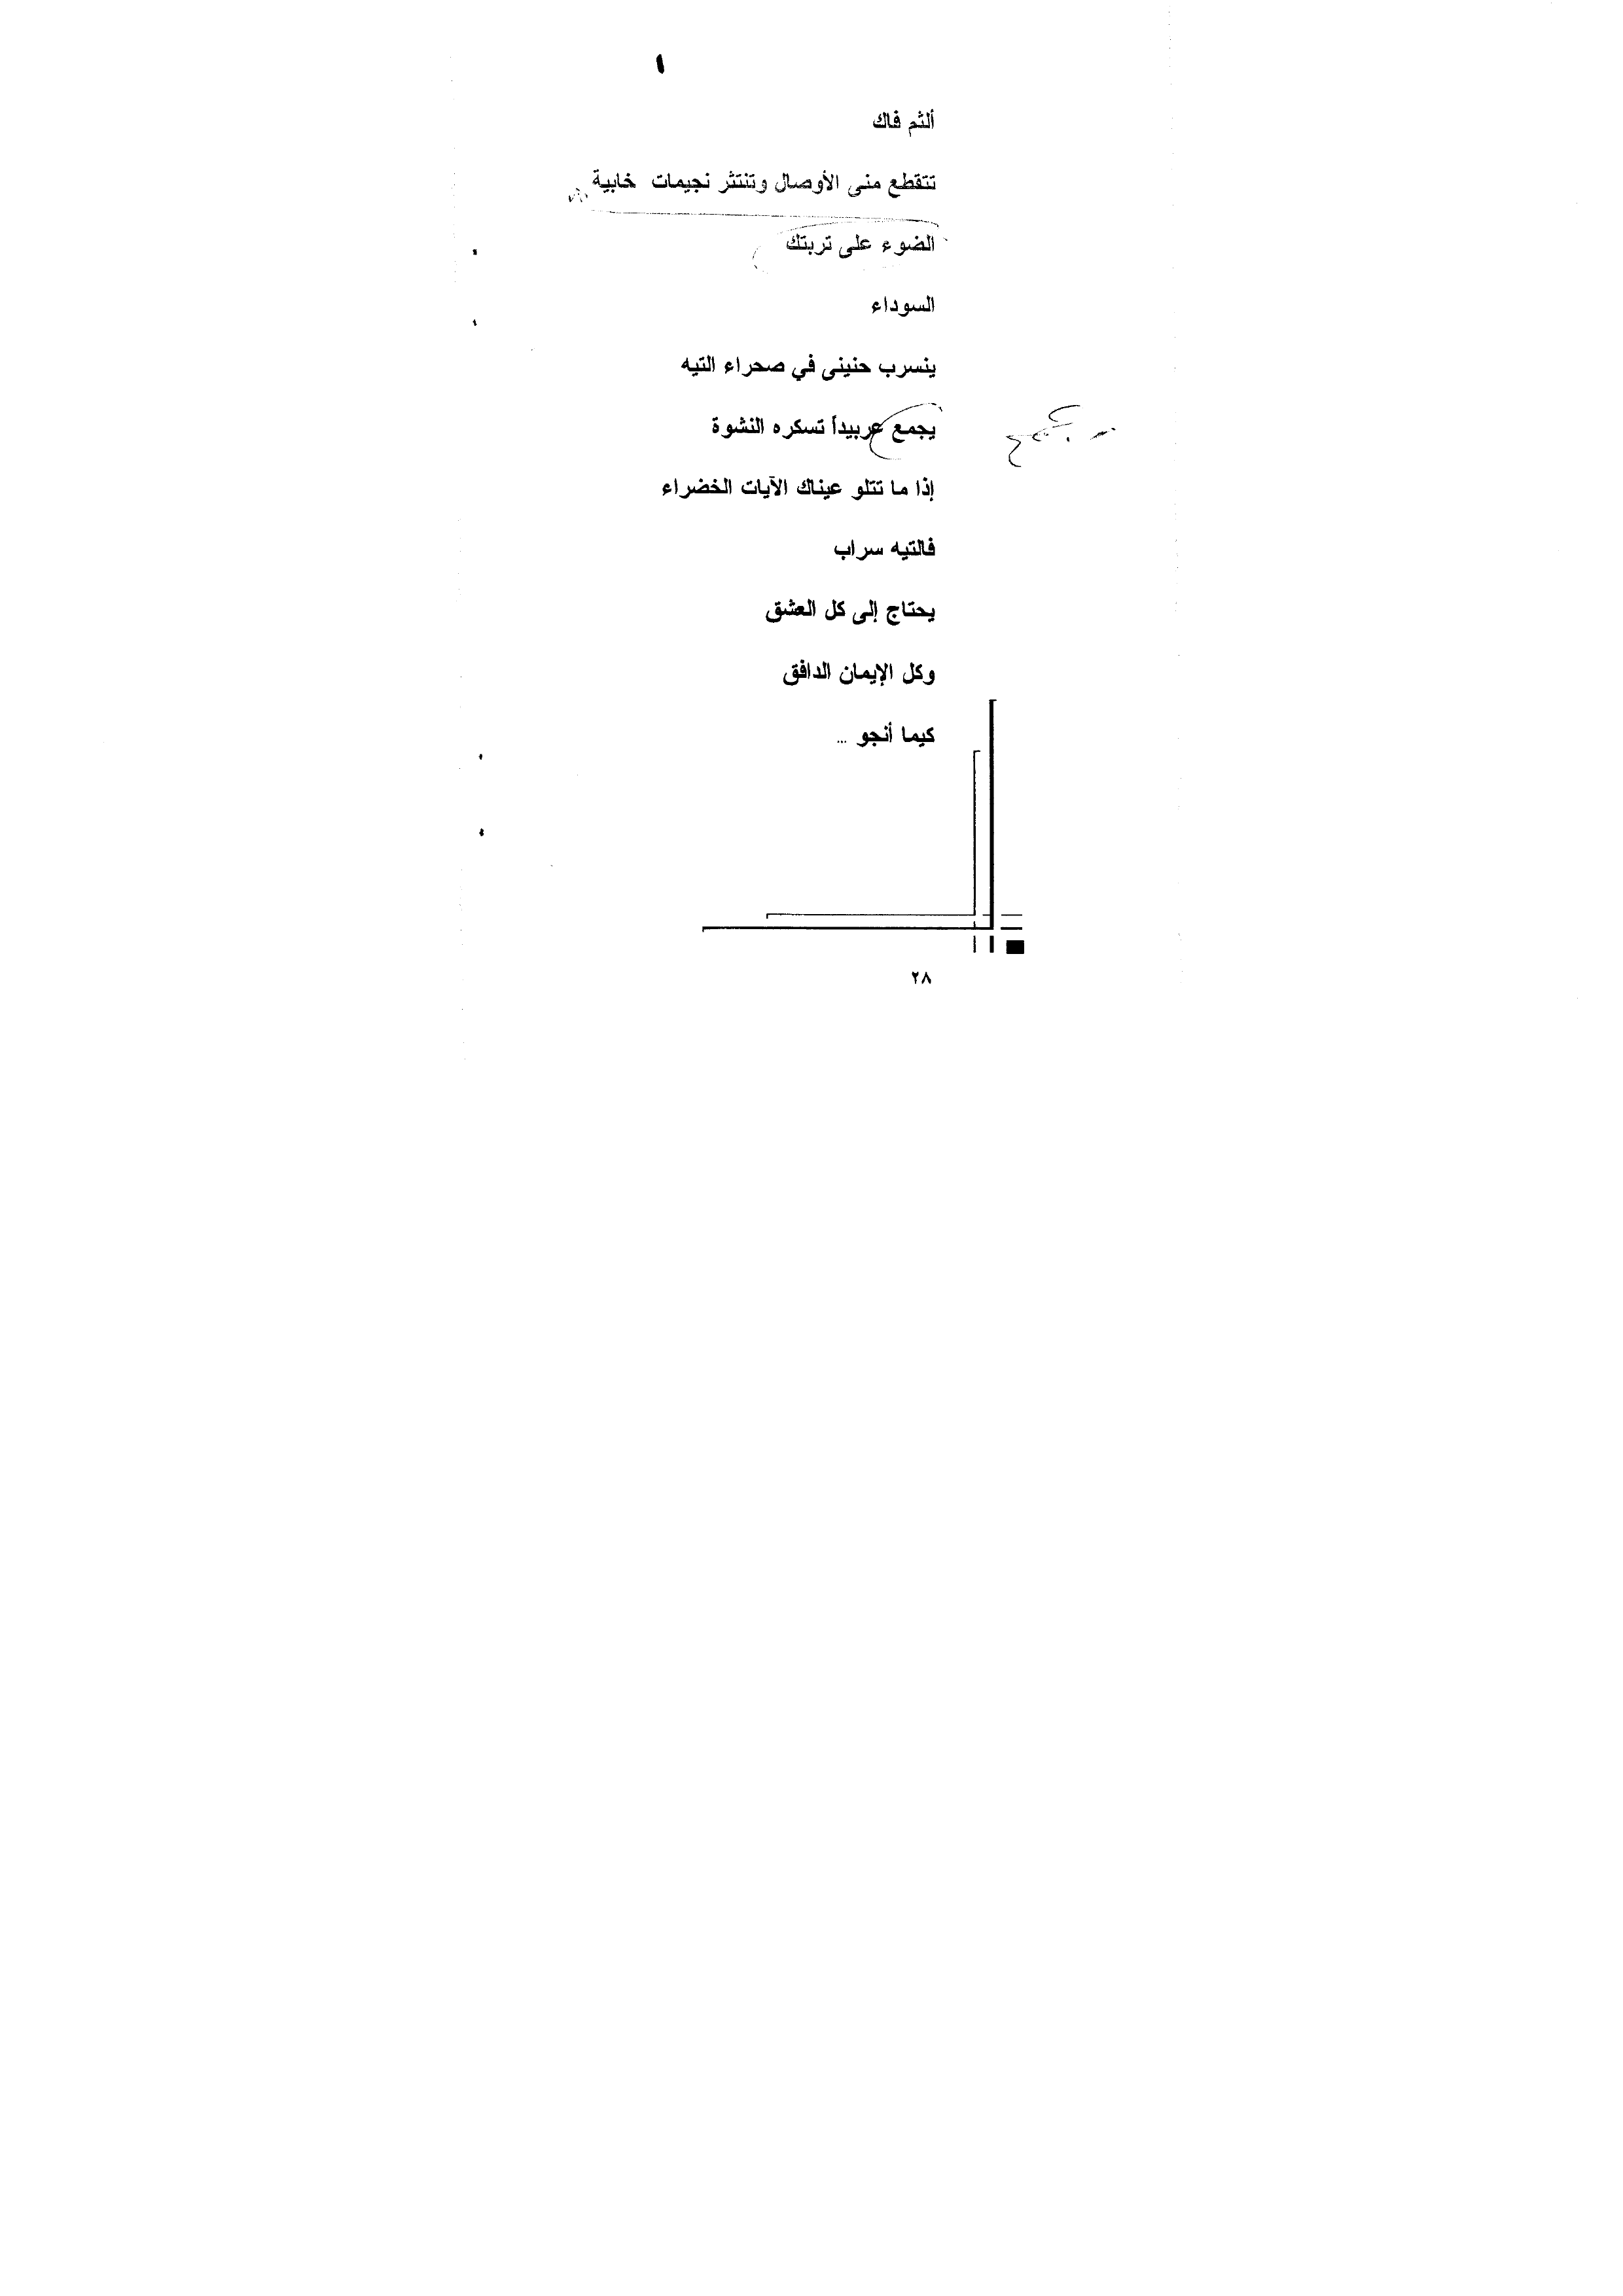 ألثم فاك
تتقطع منى الأوصال وتنتثر نجيمات خابية
الضوء على تربتك
السوداء
ينسرب حنينى في صحراء التيه
يجمع عربيداً تسكره النشوة
إذا ما تتلو عيناك الآيات الخضراء
فالتيه سراب
يحتاج إلى كل العشق
وكل الإيمان الدافق
كيما أنجو ...
٢٨